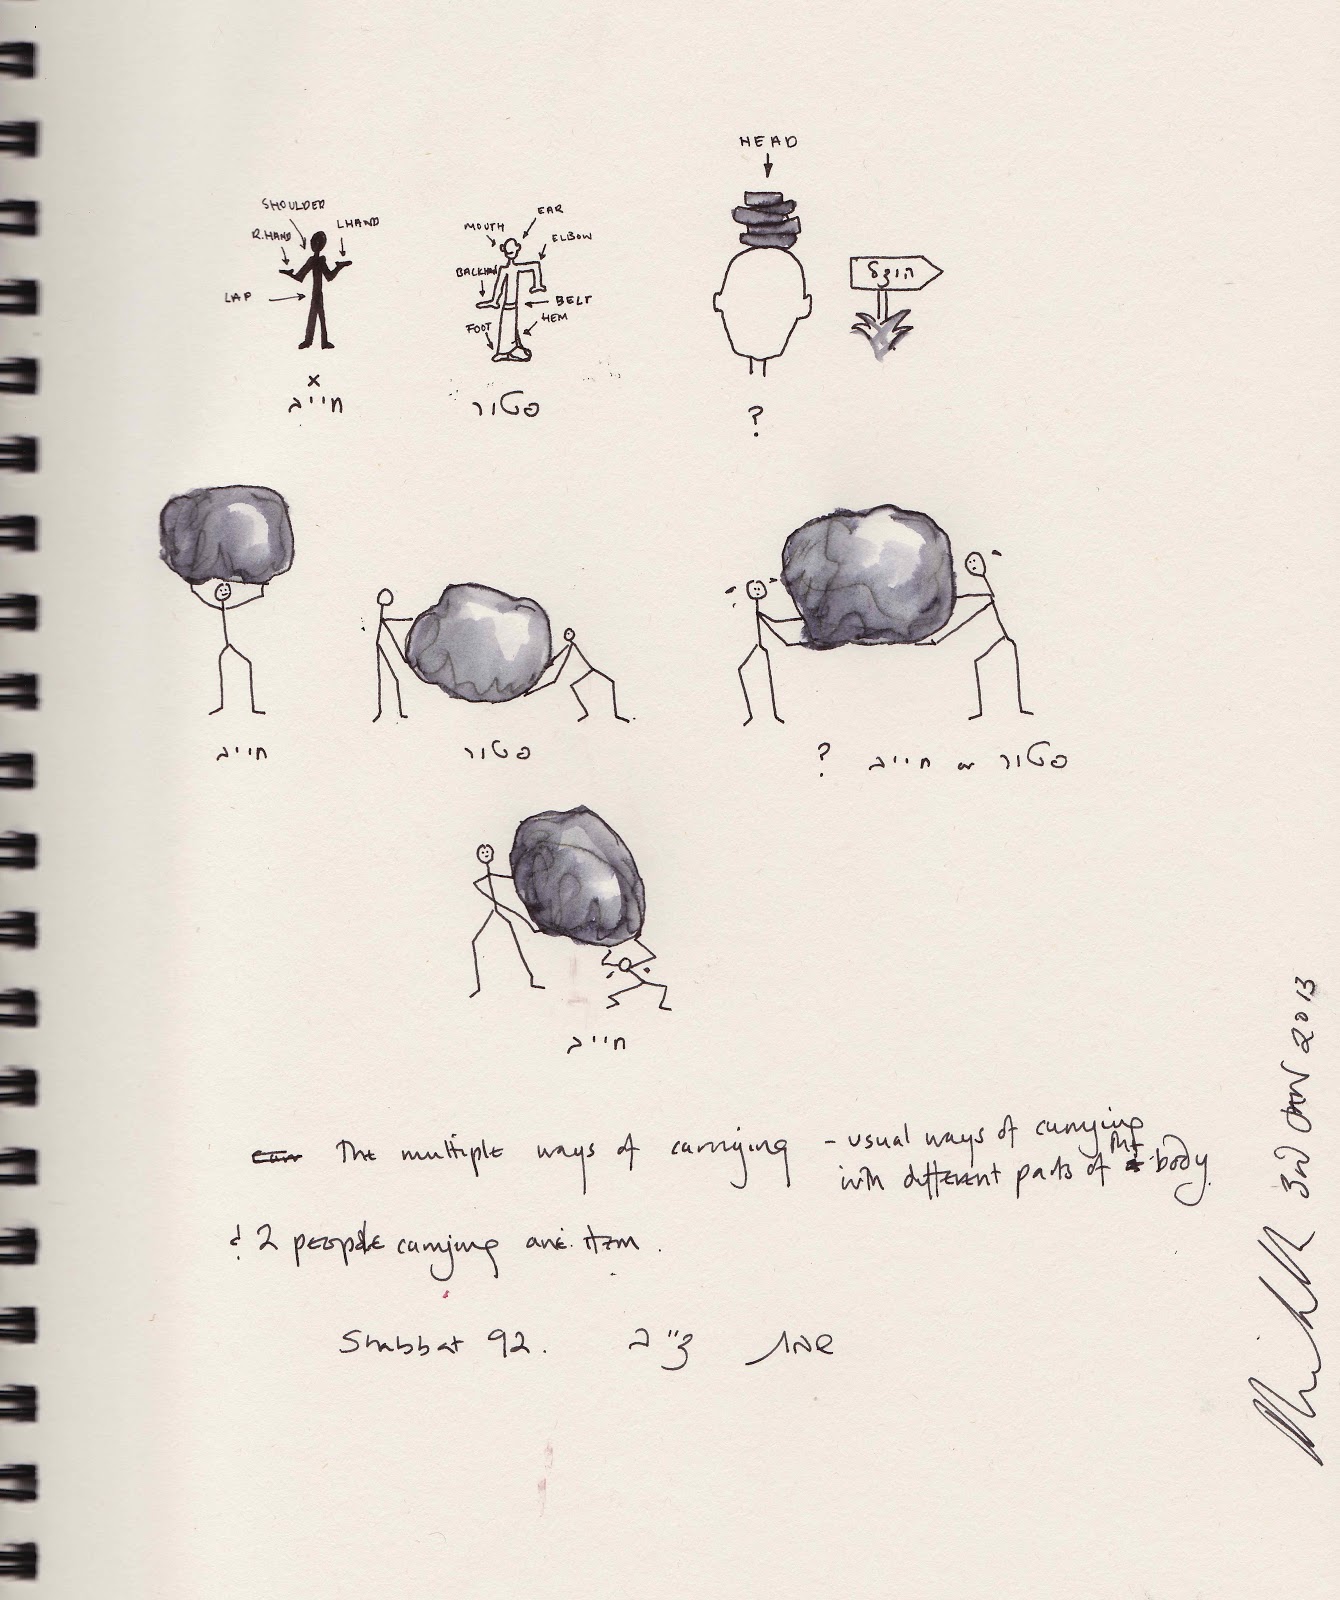 HEAD
SHOULDER
R.HAND
L HAND
LAP
MOUTH
EAR
ELBOW
BACKHAND
BELT
FOOT
HEM
הוצל
x
חייב
פטור
?
חייב
פטור
פטור or חייב ?
חייב
The multiple ways of carrying - usual ways of carrying
with different parts of the body.
& 2 people carrying one item.
Shabbat 92. שבת צ"ב
3rd JAN 2013